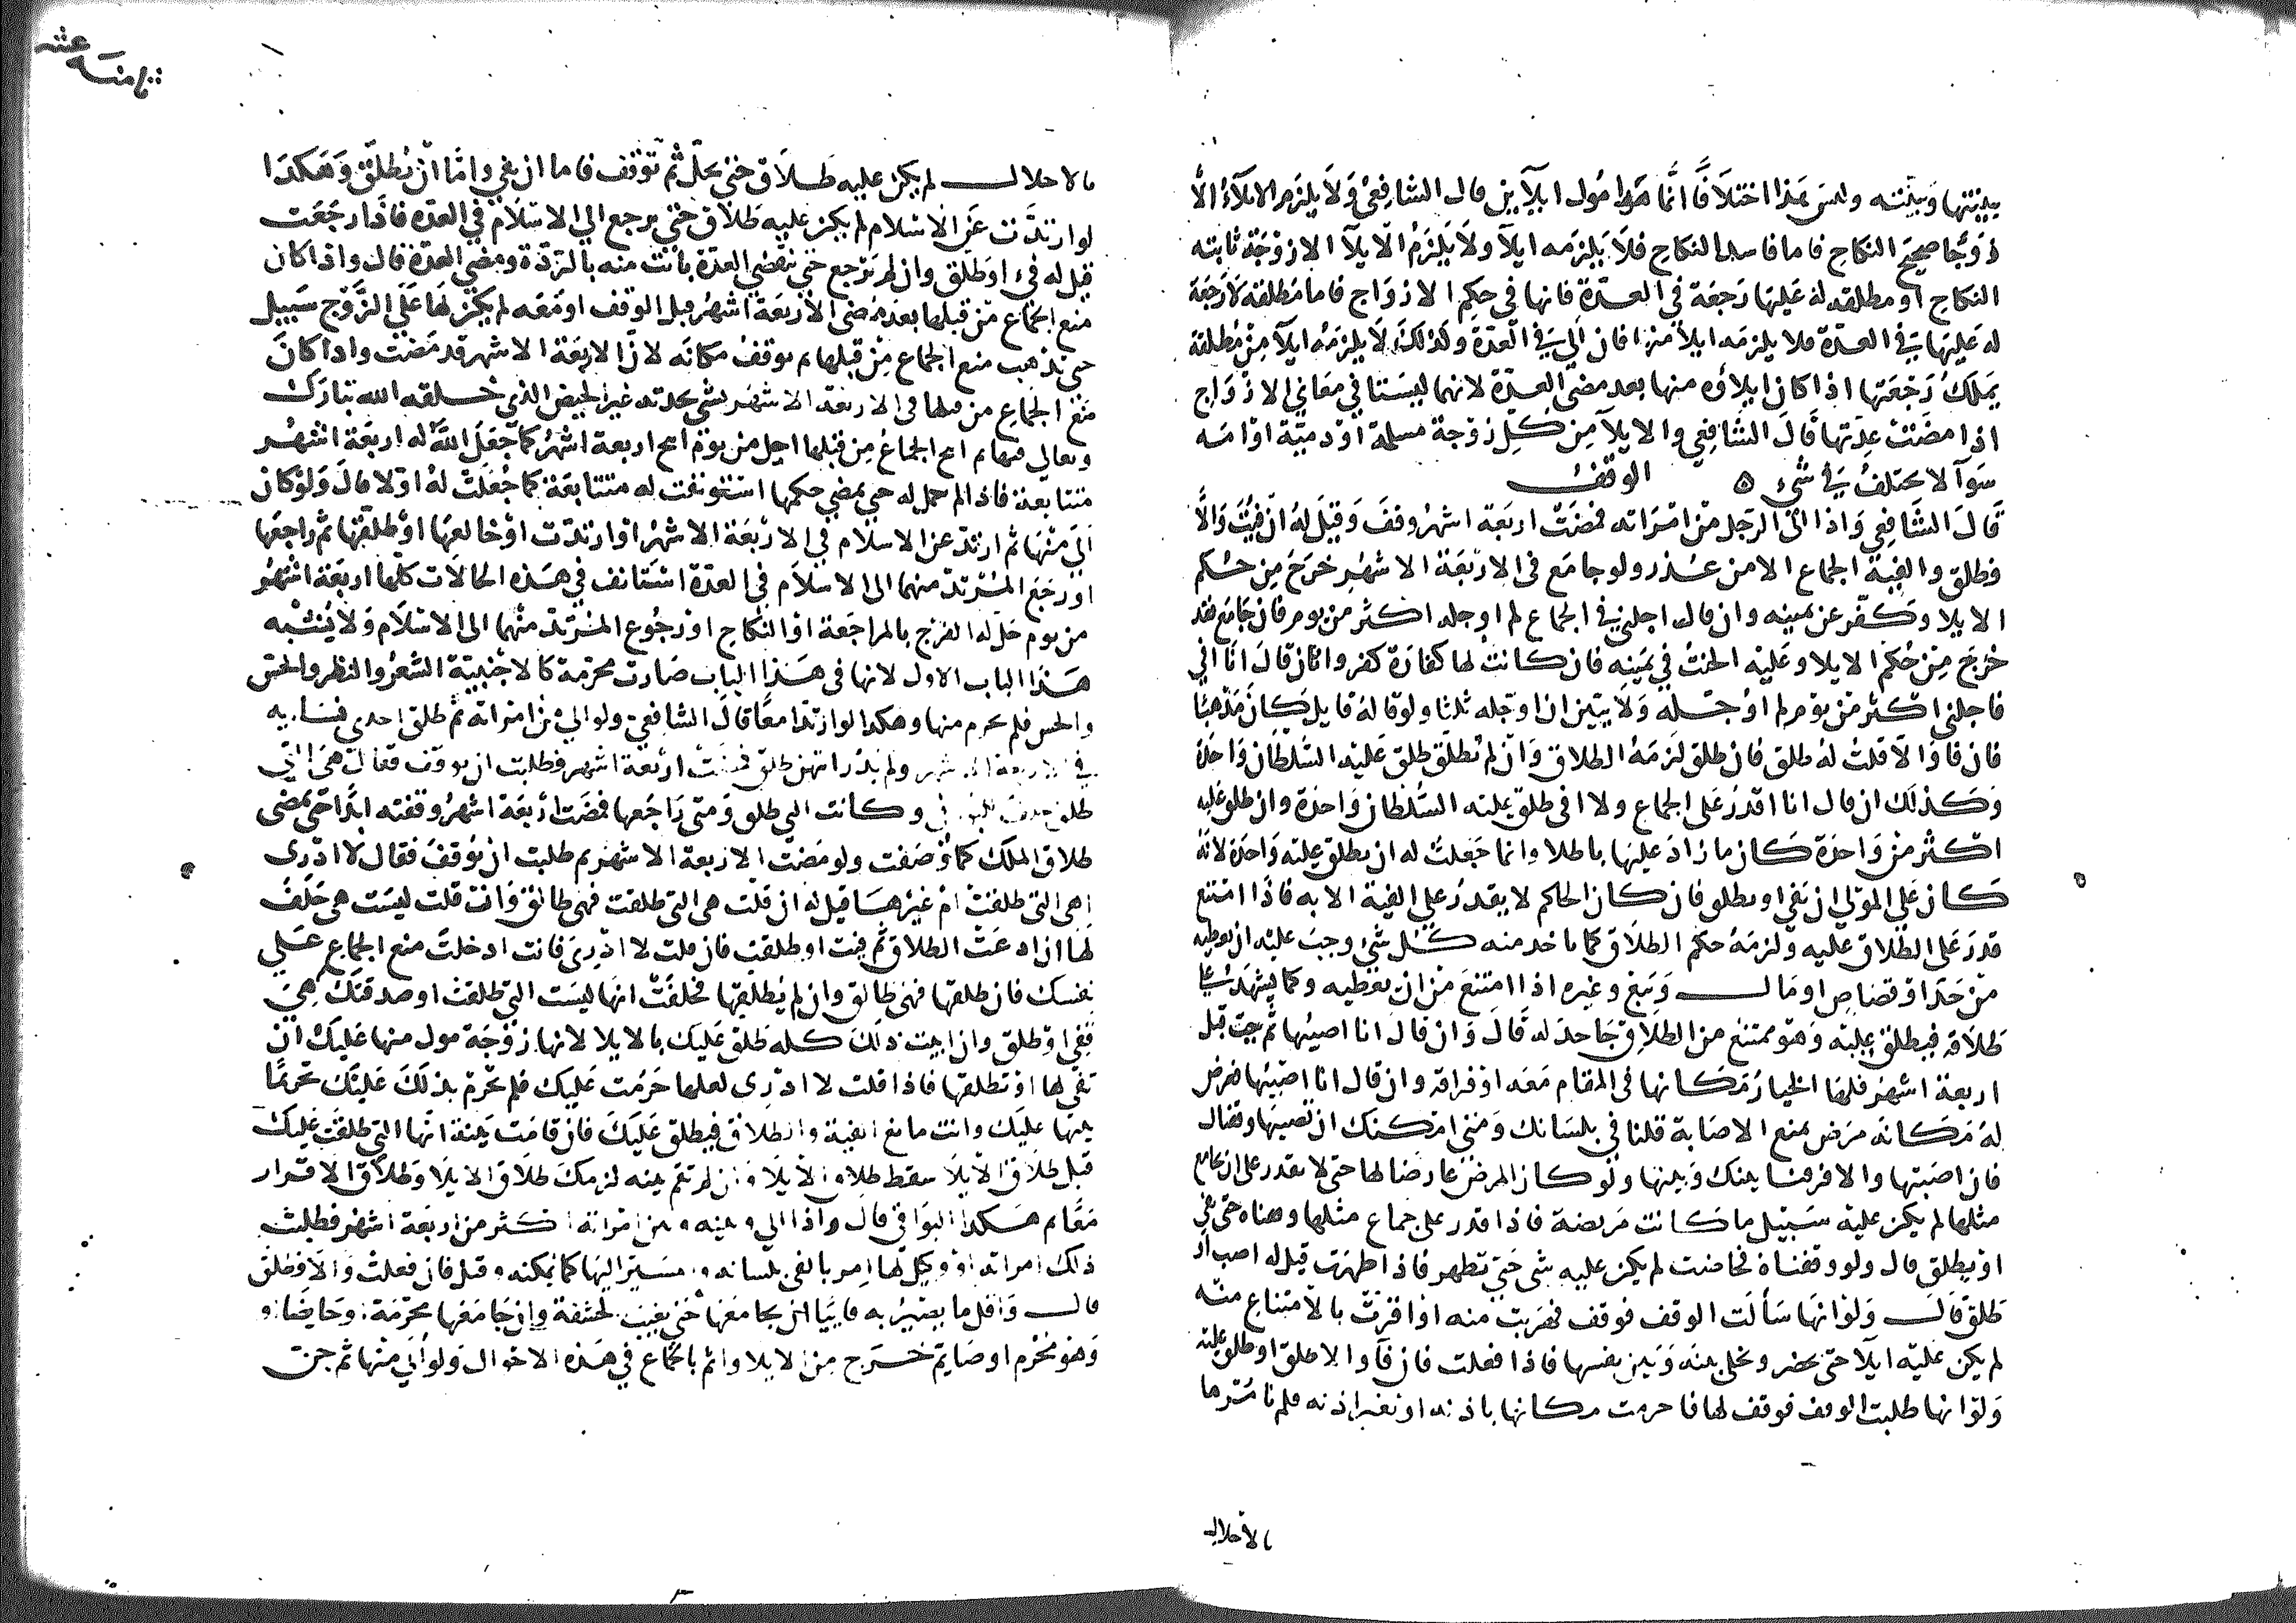 بينتها وبينته وليس هذا اختلافا انما هوا مول ايلاين قال الشافعي ولا يلزم الايلاء الا
زوجا صحيح النكاح فاما فاسد النكاح فلا يلزمه ايلآ ولا يلزم الايلآ الا زوجة ثابته
النكاح او مطلقه له عليها رجعة في العدة فانها في حكم الازواج فاما مطلقة لا رجعة
له عليها في العدة فلا يلزمه ايلا منها فان الي في العدة ولذلك لا يلزمه ايلآ من مطلقة
يملك رجعتها اذا كان ايلاؤه منها بعد مضي العدة لانهما ليستا في معاني الازواج
اذا مضت عدتها قال الشافعي والايلآ من كل زوجة مسلمة او ذمية او امه
سوآ لا يختلف في شيء ه الوقف
قال الشافعي واذا الى الرجل من امراته فمضت اربعة اشهر وقف وقيل له ان فيت والا
فطلق والفية الجماع الا من عذر ولو جامع في الاربعة الاشهر خرج من حكم
الايلا وكفر عن يمينه وان قال اجلني في الجماع لم اوجله اكثر من يوم فان جامع فقد
خرج من حكم الايلا وعليه الحنث في يمينه فان كانت لها كفارة كفر وان قال انا افي
فاجلني اكثر من يوم لم اوجله ولا يتبين ان اوجله ثلثا ولو قاله قايل كان مذهبا
فان فا والا قلت له طلق فان طلق لزمه الطلاق وان لم يطلق طلق عليه السلطان واحدة
وكذلك ان قال انا اقدر على الجماع ولا افي طلق عليه السلطان واحدة وان طلق عليه
اكثر من واحدة كان ما زاد عليها باطلا وانما جعلت له ان يطلق عليه واحدة لانه
كان على المولي ان يفي او يطلق فان كان الحاكم لا يقدر على الفية الا به فاذا امتنع
قدر على الطلاق عليه ولزمه حكم الطلاق كما ياخد منه كل شي وجب عليه ان يعطيه
من حد او قصاص او مال وبيع وغيره اذا امتنع من ان يعطيه وكما يشهد على
طلاقه فيطلق عليه وهو ممتنع من الطلاق جاحد له قال وان قال انا اصيبها ثم جب قبل
اربعة اشهر فلها الخيار مكانها في المقام معه او فراقه وان قال انا اصيبها فعرض
له مكانه مرض يمنع الاصابة قلنا في بلسانك ومتى امكنك ان تصيبها وقفناك
فان اصبتها والا فرقنا بينك وبينها ولو كان المرض عارضا لها حتى لا يقدر على ان يجامع
مثلها لم يكن عليه سبيل ما كانت مريضة فاذا قدر على جماع مثلها وقفناه حتى يفي
او يطلق قال ولو وقفناه فحاضت لم يكن عليه شي حتى تطهر فاذا طهرت قيل له اصب او
طلق قال ولو انها سألت الوقف فوقف فهربت منه او اقرت بالامتناع منه
لم يكن عليه ايلآ حتى يحضر ويخلي بينه وبين نفسها فاذا فعلت فان فآ والا طلق او طلق عليه
ولو انها طلبت الوقف فوقف لها فاحرمت مكانها باذنه او بغير اذنه فلم نامرها
بالاحلال
ثامنة عشر
بالاحلال لم يكن عليه طلاق حتى يحل ثم توقف فاما ان يفي واما ان يطلق وهكذا
لو ارتدت عن الاسلام لم يكن عليه طلاق حتى يرجع الي الاسلام في العدة فاذا رجعت
قيل له فئ او طلق وان لم ترجع حتى تنقضي العدة بانت منه بالردة ومضي العدة قال واذا كان
منع الجماع من قبلها بعد مضي الاربعة اشهر قبل الوقف او معه لم يكن لها على الزوج سبيل
حتى تذهب منع الجماع من قبلها ثم يوقف مكانه لان الاربعة الاشهر قد مضت واذا كان
منع الجماع من قبلها في الاربعة الاشهر بشي تحدثه غير الحيض الذي خلقه الله تبارك
وتعالى فيها ثم ابيح الجماع من قبلها اجل من يوم ابيح اربعة اشهر كما جعل الله له اربعة اشهر
متتابعة فاذا لم تكمل له حتى يمضي حكمها استونفت له متتابعة كما جعلت له اولا قال ولو كان
الى منها ثم ارتد عن الاسلام في الاربعة الاشهر او ارتدت او خالعها او طلقها ثم راجعها
او رجع المرتد منهما الى الاسلام في العدة استانف في هذه الحالات كلها اربعة اشهر
من يوم حل له الفرج بالمراجعة او النكاح او رجوع المرتد منهما الى الاسلام ولا يشبه
هذا الباب الاول لانها في هذا الباب صارت محرمة كالاجنبية الشعر والنظر والحس
والحس فلم يحرم منها وهكذا لو ارتدا معا قال الشافعي ولو الي من امراته ثم طلق احدى نسايه
في الاربعة الاشهر ولم يدر ايتهن طلق فمضت أربعة اشهر فطلبت ان يوقف فقال هي التي
طلقت حلف للبواقي وكانت التي طلق ومتى راجعها فمضت أربعة اشهر وقفته ابدا حتى يمضى
طلاق الملك كما وصفت ولو مضت الاربعة الاشهر ثم طلبت ان يوقف فقال لا ادرى
اهي التي طلقت ام غيرها قيل له ان قلت هي التي طلقت فهي طالق وان قلت ليست هي حلفت
لها ان ادعت الطلاق ثم فيت او طلقت فان قلت لا ادرى فانت ادخلت منع الجماع على
نفسك فان طلقها فهي طالق وان لم يطلقها فحلفت انها ليست التي طلقت او صدقتك هي
ففي او طلق وان ابيت ذلك كله طلق عليك بالايلا لانها زوجة مول منها عليك ان
تفي لها او تطلقها فاذا قلت لا ادرى لعلها حرمت عليك فلم تحرم بذلك عليك تحريما
بينها عليك وانت مانع الفية والطلاق فيطلق عليك فان قامت بينة انها التي طلقت عليك
قبل طلاق الايلا سقط طلاق الايلا وان لم تقم بينه لزمك طلاق الايلا وطلاق الاقرار
معا ثم هكذا البواقي قال واذا الي وبينه وبين امراته اكثر من اربعة اشهر فطلبت
ذلك امراته او وكيل لها امر بالفي بلسانه والمسير اليها كما يمكنه وقيل فان فعلت والا فطلق
قال واقل ما يصير به فايئا ان يجامعها حتى يغيب الحشفة وان جامعها محرمة او حايضا او
وهو محرم او صايم خرج من الايلا واثم بالجماع في هذه الاحوال ولو الى منها ثم جن